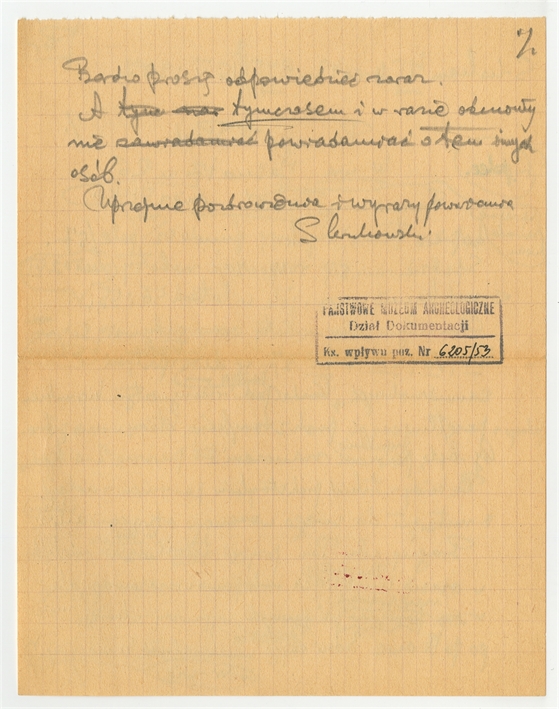 7
Bardzo proszę odpowiedzieć zaraz.
A tym tymczasem i w razie odmowy
nie zawiadamiać powiadamiać o tem innych
osób.
Uprzejme pozdrowienia i wyrazy poważania
PAŃSTWOWE MUZEUM ARCHEOLOGICZNE
Dział Dokumentacji
Ks. wpływu poz. Nr 6205/53